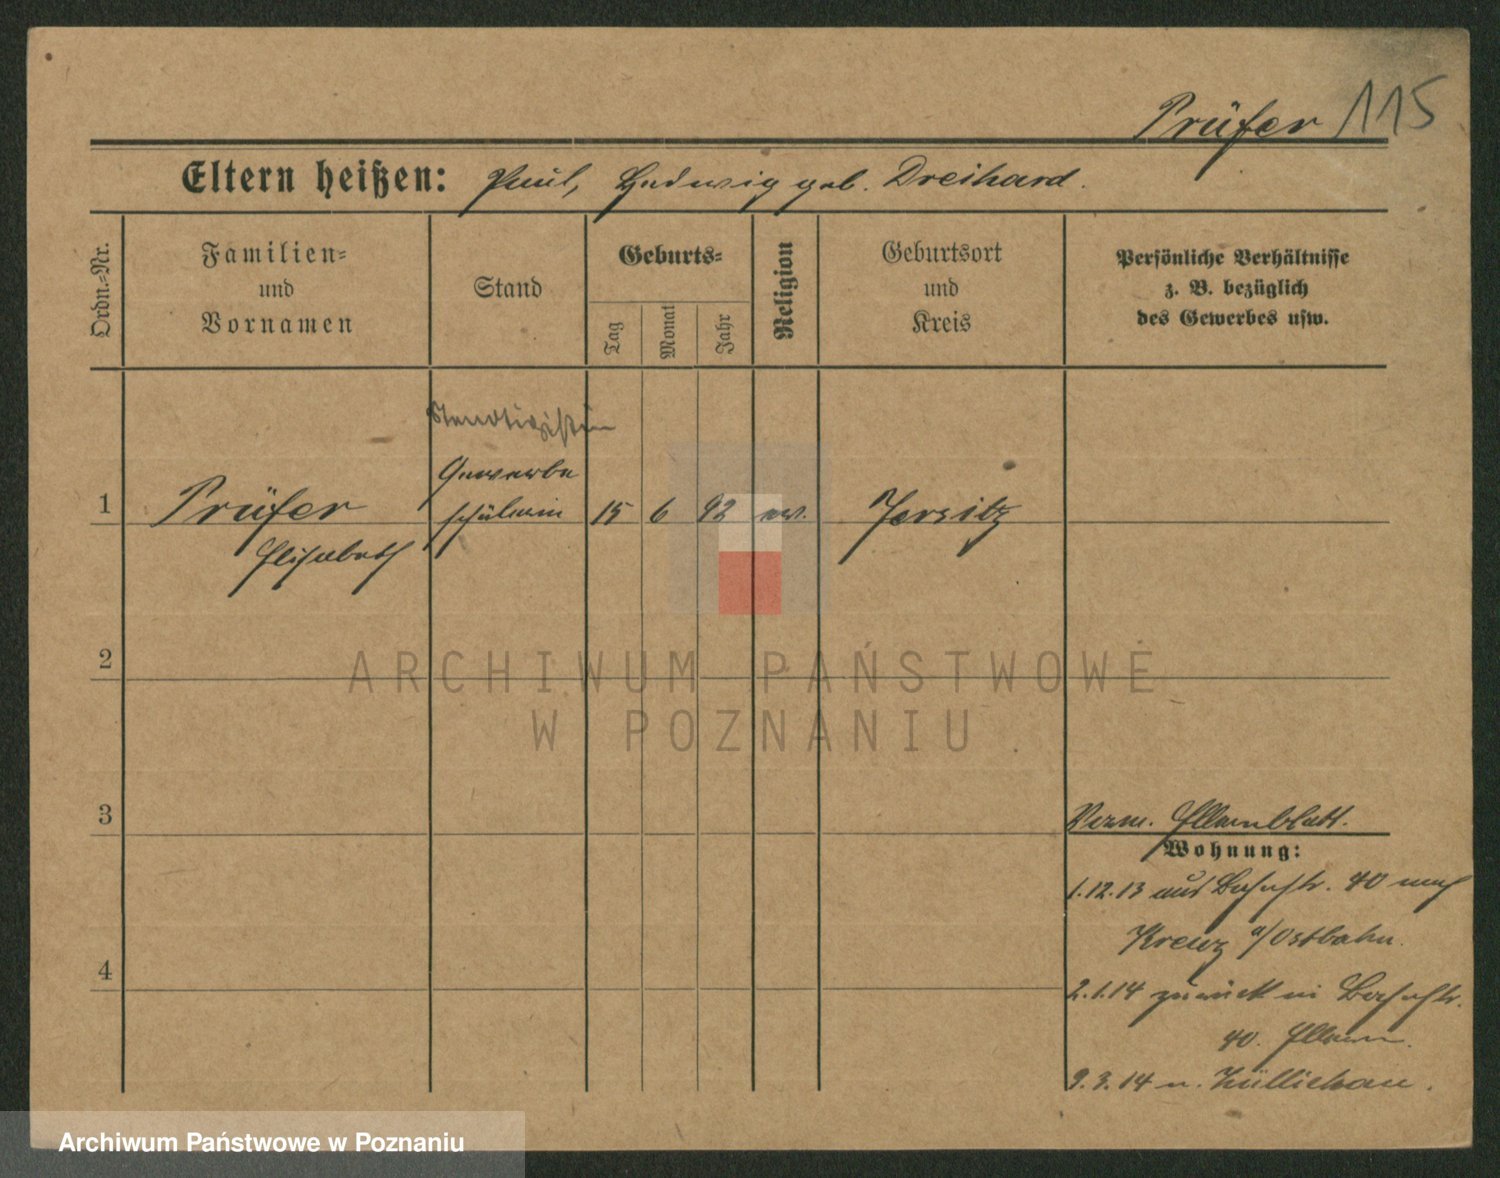 Prüfer 115
Eltern heißen: Paul, Hedwig geb. Dreihard.
Ordn.-Nr.
Familien=
und
Vornamen
Stand
Geburts=
Tag
Monat
Jahr
Religion
Geburtsort
und
Kreis
Persönliche Verhältnisse
z. B. bezüglich
des Gewerbes usw.
Gewerbe
1 Prüfer schülerin 15 6 92 ev. Jersitz
Elisabeth
2
3
Verm. Elternblatt.
Wohnung:
1.12.13 aus Bahnstr. 40 nach
Kreuz a/Ostbahn.
4
2.1.14 zurück in Bahnstr.
40. Eltern.
9.3.14 n. Züllichau.
ARCHIWUM PAŃSTWOWE
W POZNANIU
Archiwum Państwowe w Poznaniu